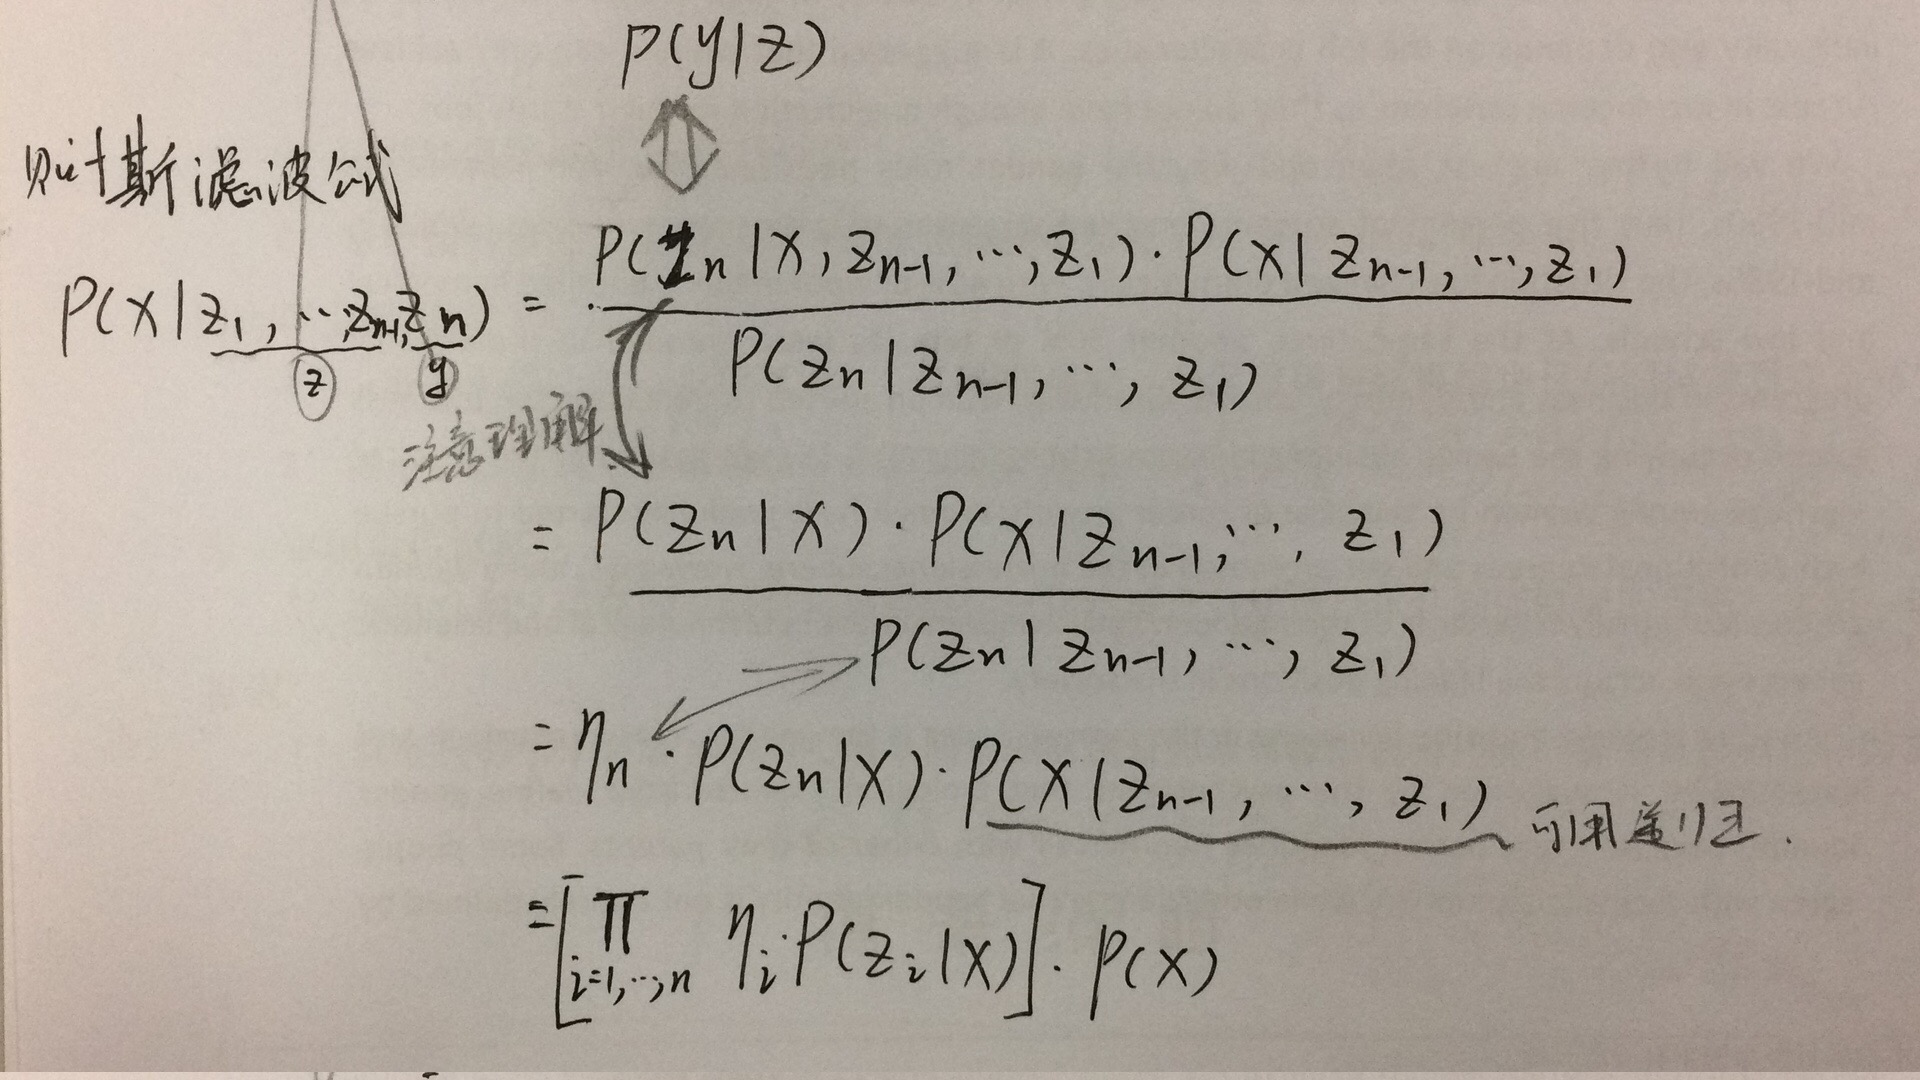 P(y|z)
贝叶斯滤波公式
P(x|z₁, ⋯, zₙ₋₁, zₙ) = P(zₙ|x, zₙ₋₁, ⋯, z₁) · P(x|zₙ₋₁, ⋯, z₁)
P(zₙ|zₙ₋₁, ⋯, z₁)
z y
注意理解
= P(zₙ|x) · P(x|zₙ₋₁, ⋯, z₁)
P(zₙ|zₙ₋₁, ⋯, z₁)
= ηₙ · P(zₙ|x) · P(x|zₙ₋₁, ⋯, z₁) 可用递归
= [∏ i=1,⋯,n ηᵢ · P(zᵢ|x)] · P(x)